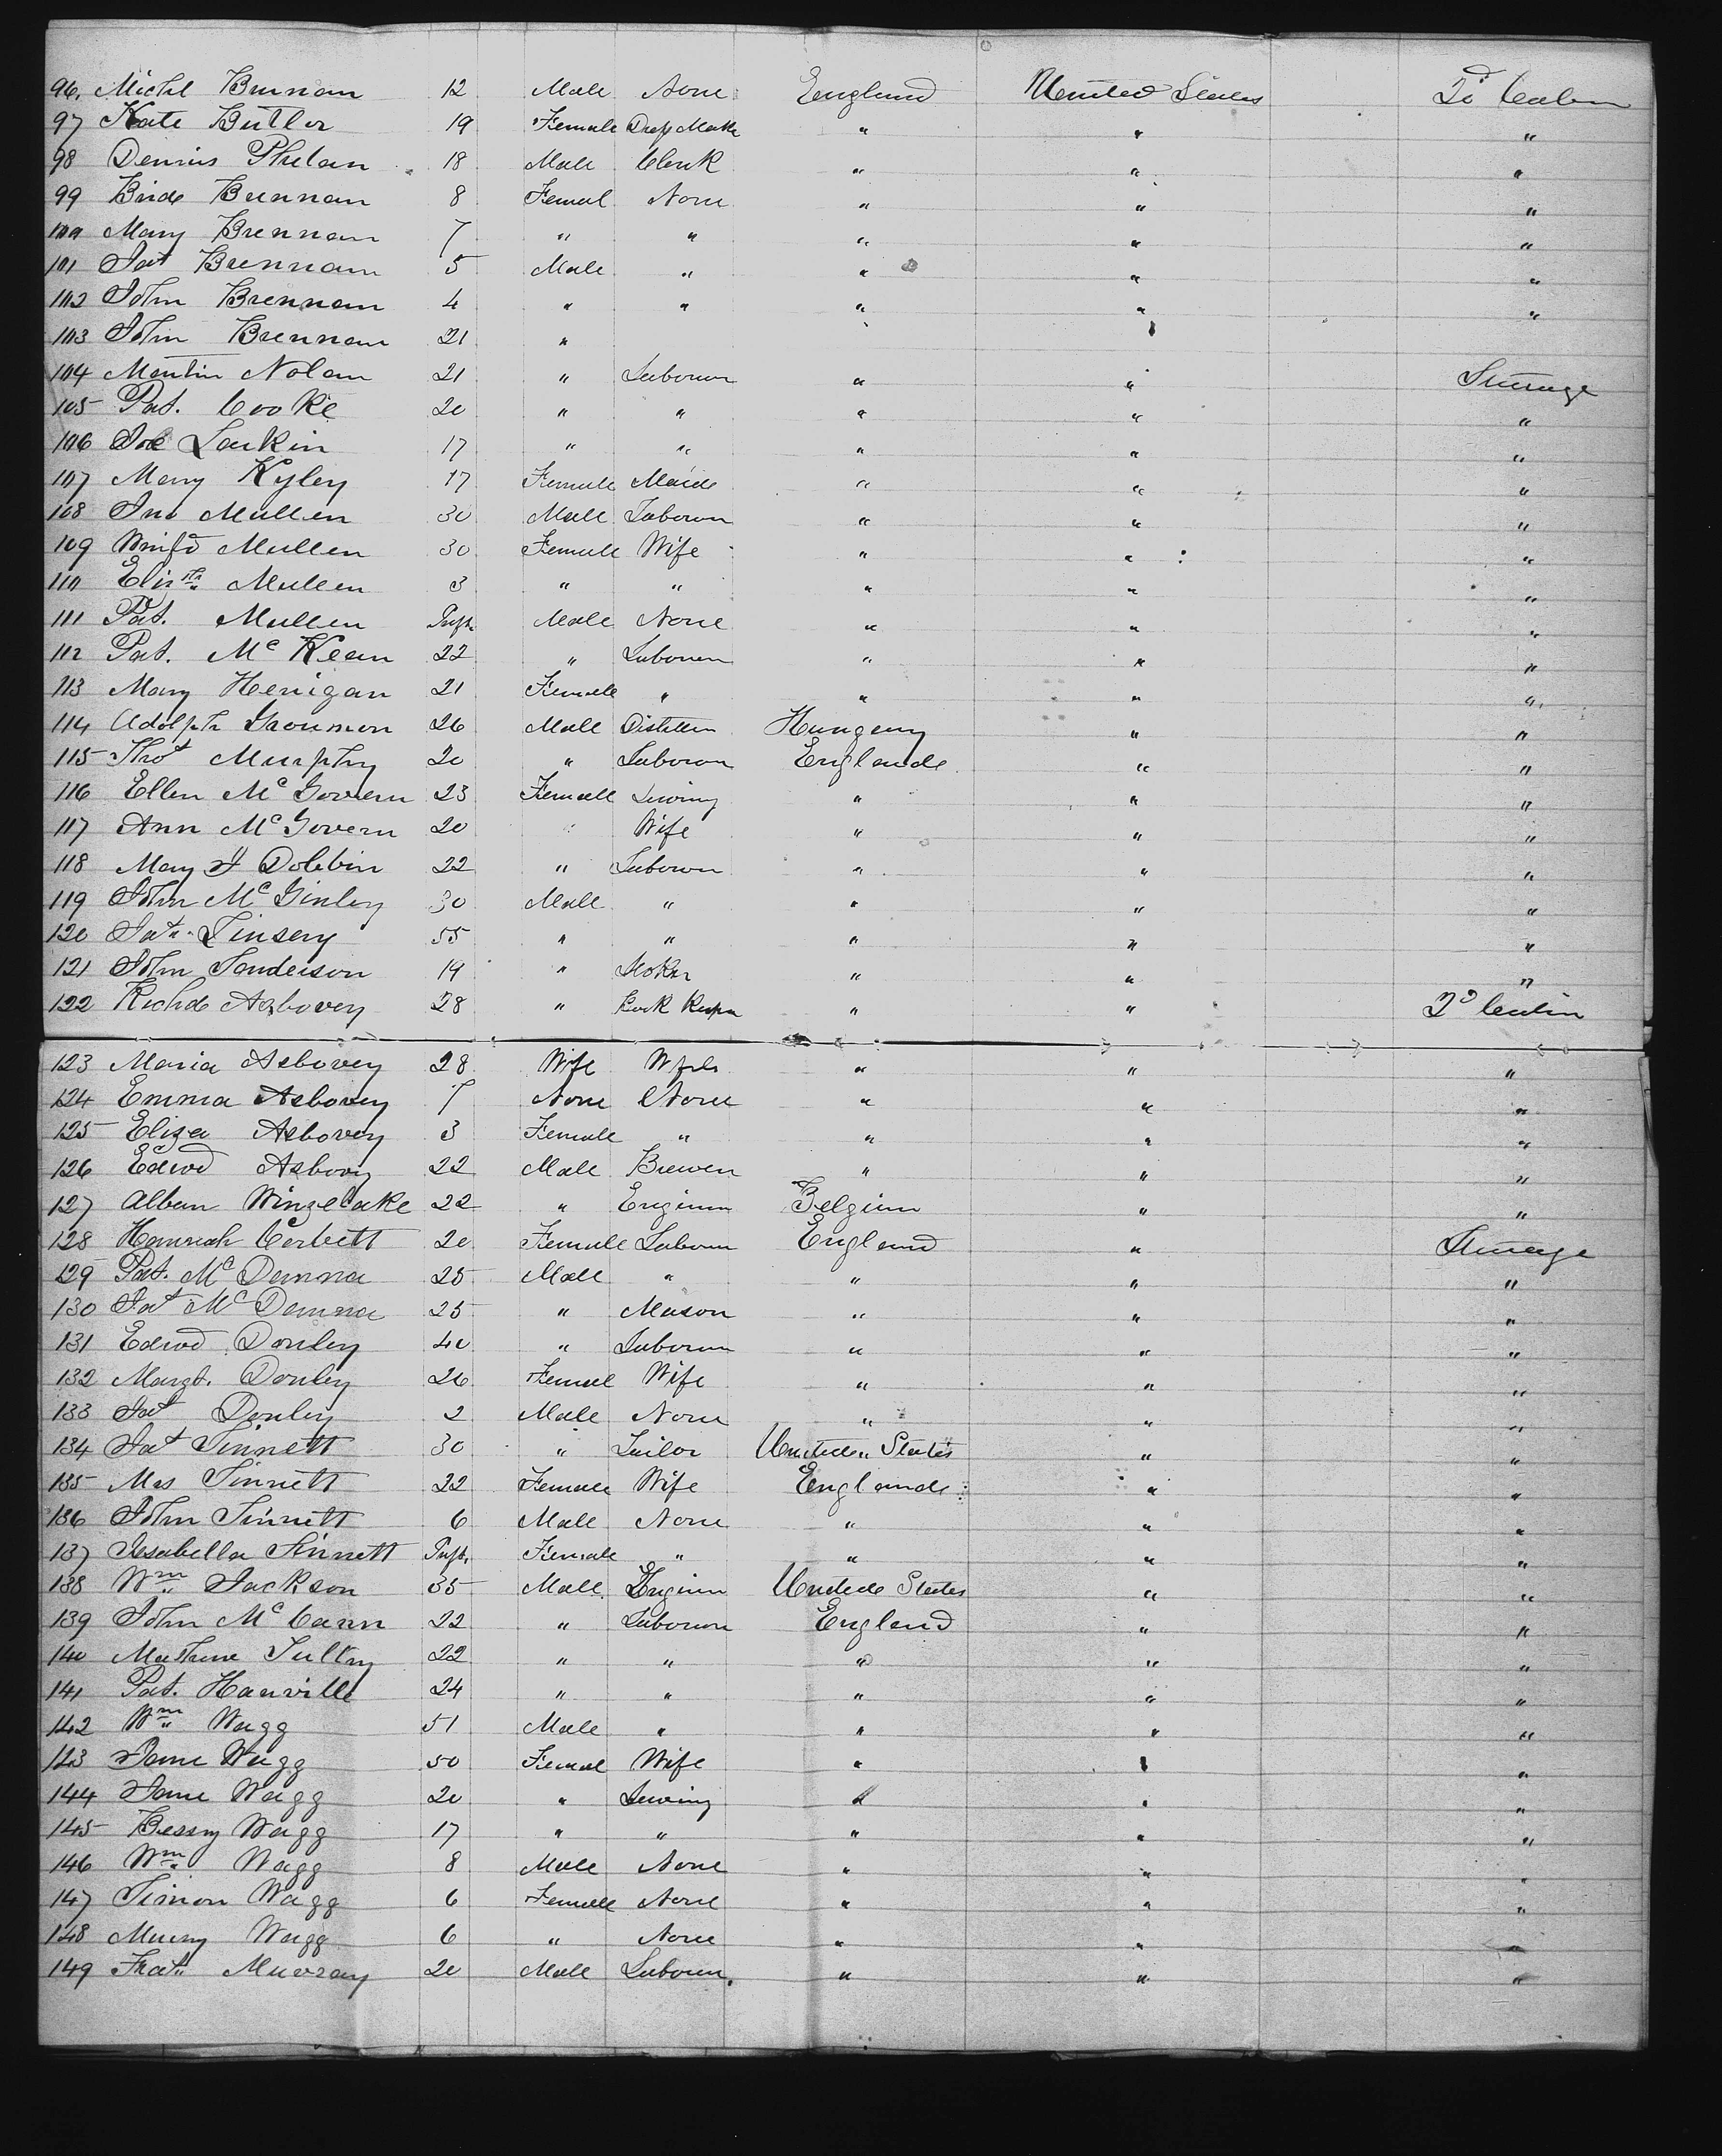 96. Michl Brennan 12 Male None England United States 2d Cabin
97 Kate Butler 19 Female Dress Make " " "
98 Dennis Phelan 18 Male Clerk " " "
99 Brid Brennan 8 Femal None " " "
100 Mary Brennan 7 " " " " "
101 Pat Brennan 5 Male " " " "
102 John Brennan 4 " " " " "
103 John Brennan 21 "
104 Martin Nolan 21 " Labourer " " Steerage
105 Pat. Cooke 20 " " " " "
106 Joe Larkin 17 " " " " "
107 Mary Kyley 17 Female Maid " " "
108 Jno Mullen 30 Male Labourer " " "
109 Winifd Mullen 30 Female Wife " " "
110 Elizth Mullen 3 " " " " "
111 Pat. Mullen Inft. Male None " " "
112 Pat. McKean 22 " Labourer " " "
113 Mary Henigan 21 Female " " " "
114 Adolph 26 Male Distiller Hungary " "
115 Thos Murphy 20 " Labourer England " "
116 Ellen McGovern 23 Female Sewing " " "
117 Ann McGovern 20 " Wife " " "
118 Mary J Dobbin 22 " Labourer " " "
119 John McGinley 30 Male " " " "
120 55 " " " " "
121 John Sanderson 19 " " " "
122 Richd Asbovey 28 " Book Keeper " " 2d Cabin
123 Maria Asbovey 28 Wife Wife " " "
124 Emma Asbovey 7 None None " " "
125 Eliza Asbovey 3 Female " " " "
126 Edwd Asbovey 22 Male Brewer " " "
127 Alban 22 " Engineer Belgium " "
128 Hannah Corbett 20 Female Labourer England " Steerage
129 Pat. McDemna 25 Male " " " "
130 Pat McDemna 25 " Mason " " "
131 Edwd Donley 40 " Labourer " " "
132 Margt. Donley 26 Female Wife " " "
133 Pat Donley 2 Male None " " "
134 Pat Sinnett 30 " Tailor United States " "
135 Mrs Sinnett 22 Female Wife England " "
136 John Sinnett 6 Male None " " "
137 Isabella Sinnett Inft. Female " " " "
138 Wm Jackson 35 Male Engineer United States " "
139 John McCann 22 " Labourer England " "
140 22 " " " " "
141 Pat. Hanville 24 " " " " "
142 Wm Wagg 51 Male " " " "
143 Jane Wagg 50 Femal Wife " " "
144 Jane Wagg 20 " Sewing " " "
145 Bessy Wagg 17 " " " " "
146 Wm Wagg 8 Male None " " "
147 Simon Wagg 6 Female None " " "
148 Wagg 6 " None " " "
149 Murray 20 Male Labourer. " " "